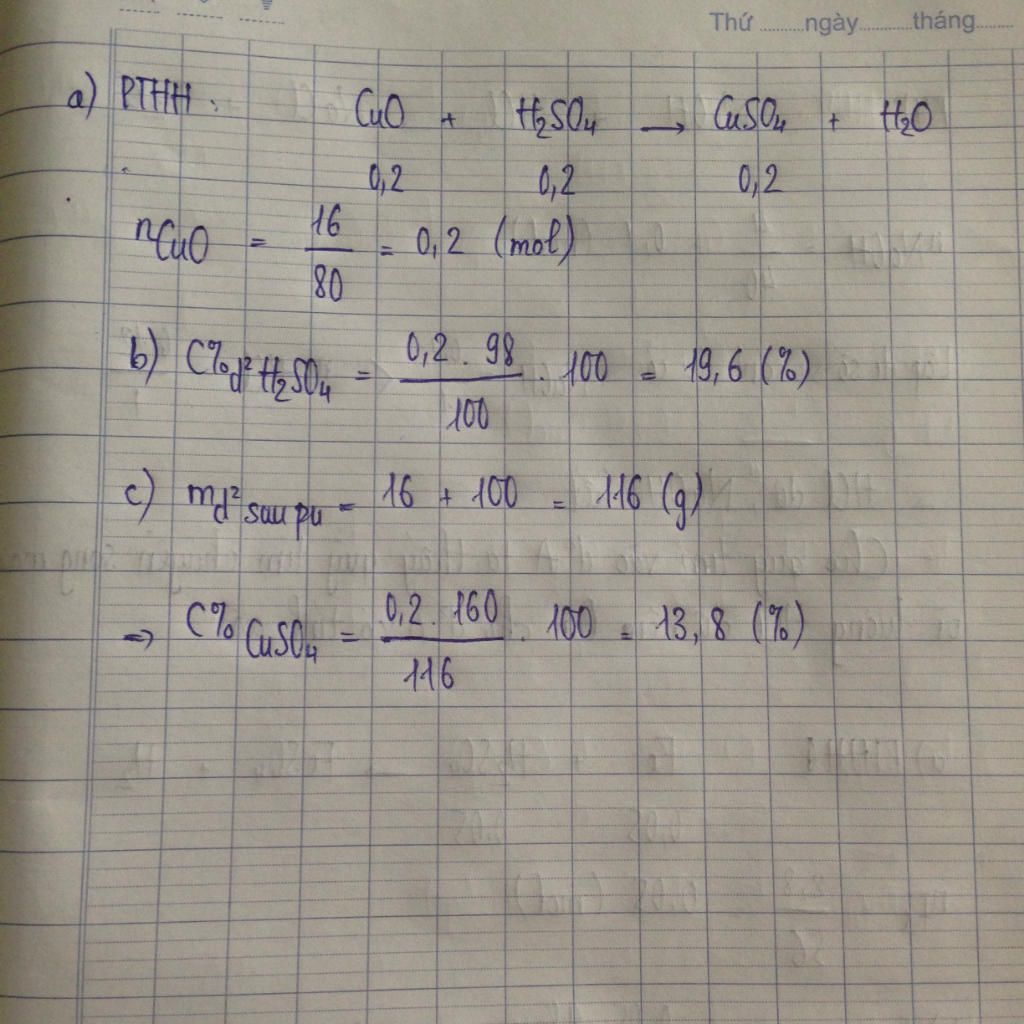 Thứ ...........ngày............tháng........
a) PTHH : CuO + H₂SO₄ → CuSO₄ + H₂O
0,2 0,2 0,2
nCuO = 16/80 = 0,2 (mol)
b) C%d² H₂SO₄ = 0,2 . 98/100 . 100 = 19,6 (%)
c) md² sau pu = 16 + 100 = 116 (g)
⇒ C% CuSO₄ = 0,2 . 160/116 . 100 = 13,8 (%)